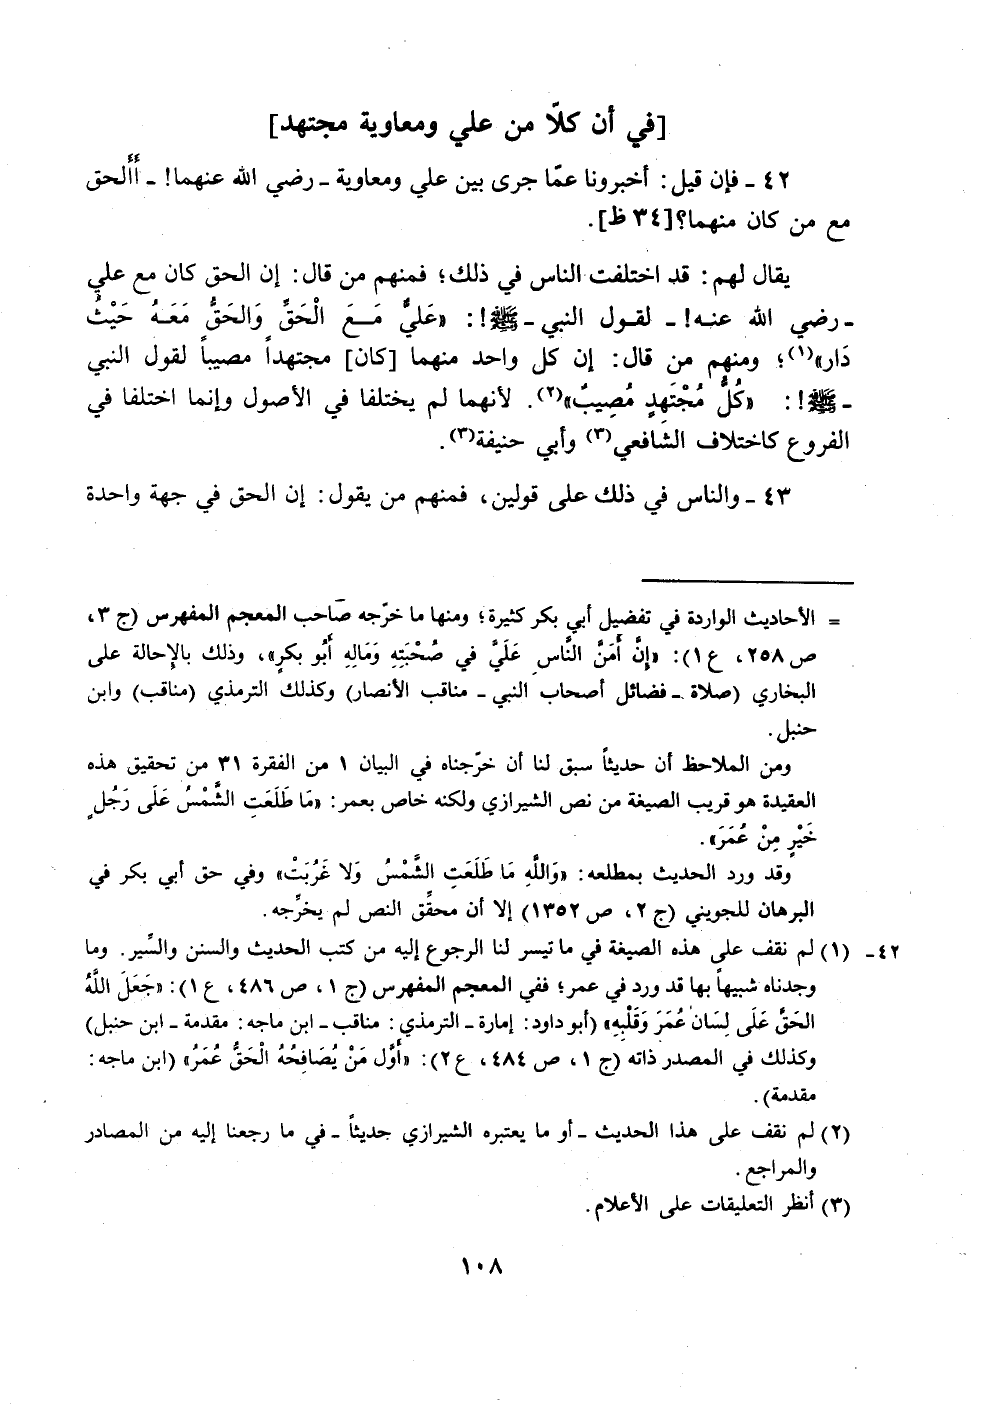 [في أن كلاّ من علي ومعاوية مجتهد]
٤٢ ـ فإن قيل: أخبرونا عمّا جرى بين علي ومعاوية ـ رضي الله عنهما! ـ أَأَلحق
مع من كان منهما؟[٣٤ ظ].
يقال لهم: قد اختلفت الناس في ذلك؛ فمنهم من قال: إن الحق كان مع علي
ـ رضي الله عنه! ـ لقول النبي ـ ﷺ!: «عَليٌّ مَعَ الْحَقِّ وَالحَقُّ مَعَهُ حَيْثُ
دَار»(١)؛ ومنهم من قال: إن كل واحد منهما [كان] مجتهداً مصيباً لقول النبي
ـ ﷺ!: «كُلُّ مُجْتَهِدٍ مُصِيبٌ»(٢). لأنهما لم يختلفا في الأصول وإنما اختلفا في
الفروع كاختلاف الشافعي(٣) وأبي حنيفة(٣).
٤٣ ـ والناس في ذلك على قولين، فمنهم من يقول: إن الحق في جهة واحدة
= الأحاديث الواردة في تفضيل أبي بكر كثيرة؛ ومنها ما خرّجه صاحب المعجم المفهرس (ج ٣،
ص ٢٥٨، ع ١): «إِنَّ أَمَنَّ النَّاسِ عَلَيَّ في صُحْبَتِهِ وَمَالِهِ أَبُو بكرٍ»، وذلك بالإِحالة على
البخاري (صلاة ـ فضائل أصحاب النبي ـ مناقب الأنصار) وكذلك الترمذي (مناقب) وابن
حنبل.
ومن الملاحظ أن حديثاً سبق لنا أن خرّجناه في البيان ١ من الفقرة ٣١ من تحقيق هذه
العقيدة هو قريب الصيغة من نص الشيرازي ولكنه خاص بعمر: «مَا طَلَعَتِ الشَّمْسُ عَلَى رَجُلٍ
خَيْرٍ مِنْ عُمَرَ».
وقد ورد الحديث بمطلعه: «وَاللَّهِ مَا طَلَعَتِ الشَّمْسُ وَلا غَرُبَتْ» وفي حق أبي بكر في
البرهان للجويني (ج ٢، ص ١٣٥٢) إلا أن محقِّق النص لم يخرِّجه.
٤٢ـ (١) لم نقف على هذه الصيغة في ما تيسر لنا الرجوع إليه من كتب الحديث والسنن والسِّير. وما
وجدناه شبيهاً بها قد ورد في عمر؛ ففي المعجم المفهرس (ج ١، ص ٤٨٦، ع ١): «جَعَلَ اللَّهُ
الحَقَّ عَلَى لِسَان عُمَرَ وَقَلْبِهِ» (أبو داود: إمارة ـ الترمذي: مناقب ـ ابن ماجه: مقدمة ـ ابن حنبل)
وكذلك في المصدر ذاته (ج ١، ص ٤٨٤، ع ٢): «أَوَّل مَنْ يُصَافِحُهُ الْحَقُّ عُمَرُ» (ابن ماجه:
مقدمة).
(٢) لم نقف على هذا الحديث ـ أو ما يعتبره الشيرازي حديثاً ـ في ما رجعنا إليه من المصادر
والمراجع.
(٣) أنظر التعليقات على الأعلام.
١٠٨